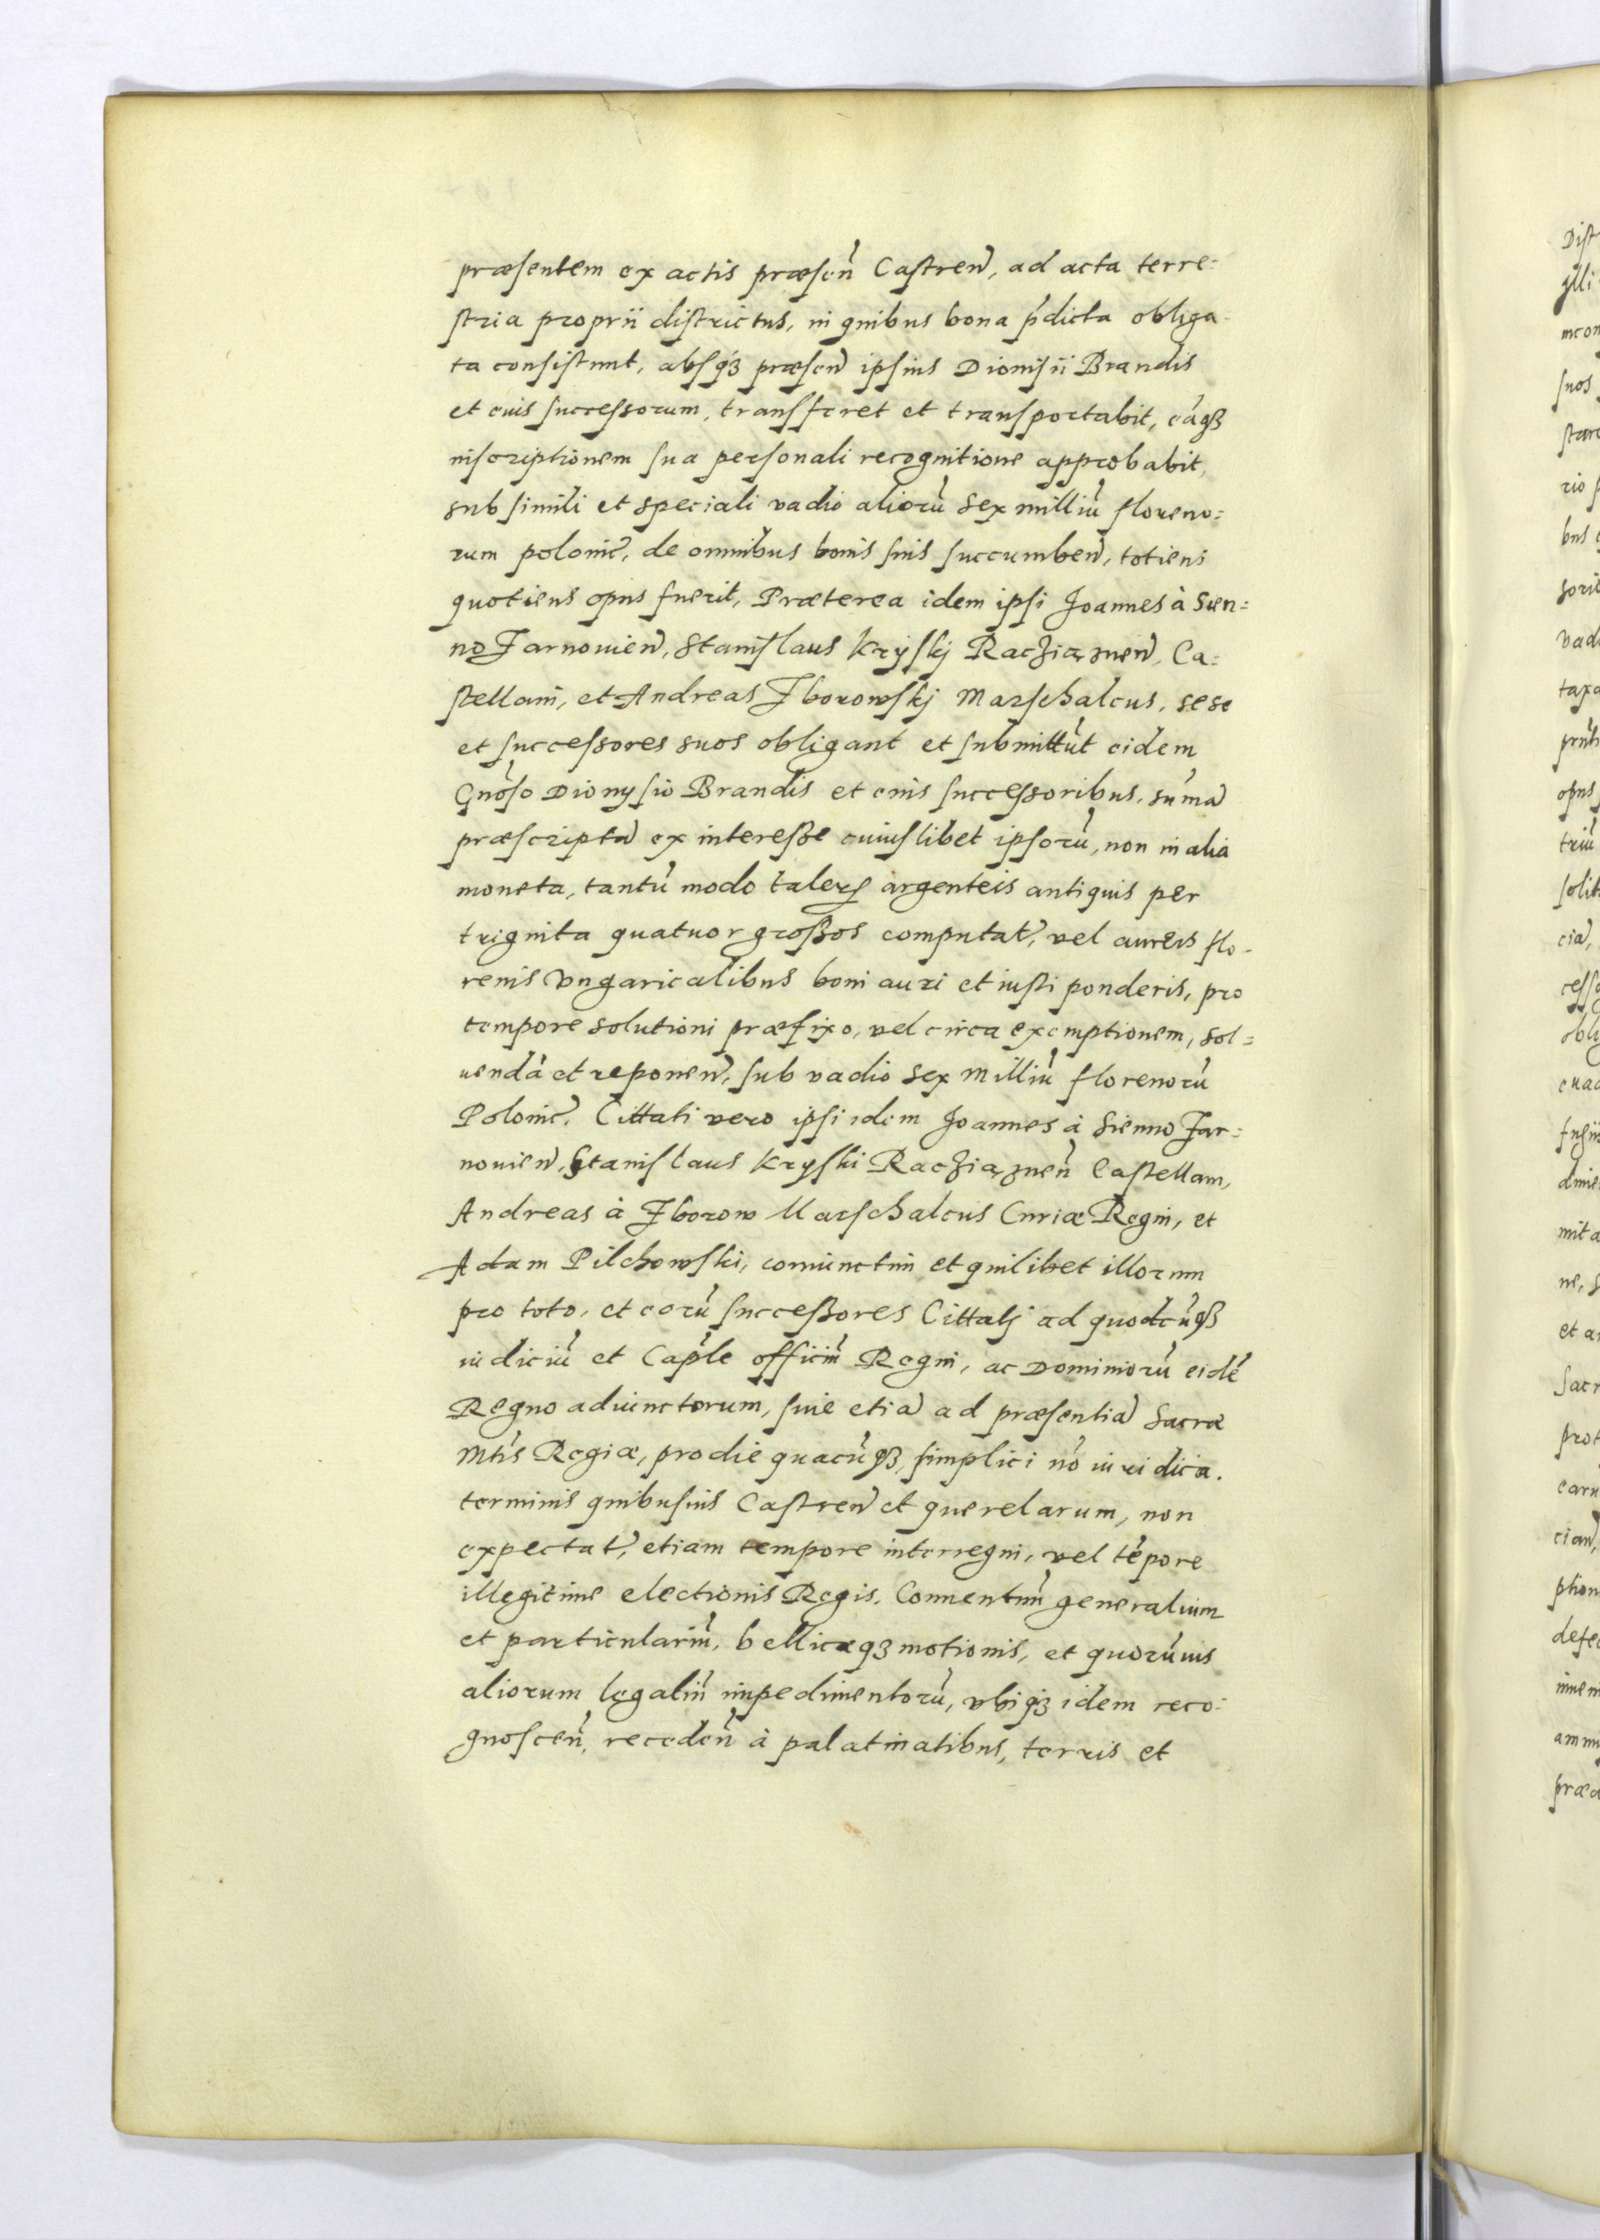 præsentem ex actis præsen̄ Castren̄, ad acta terre=
stria proprii districtus, in quibus bona p̄dicta obliga-
ta consistunt, absq́ꝫ præsen̄ ipsius Dionisii Brandis
et eius successorum, transferet et transportabit, eāqꝫ
inscriptionem sua personali recognitione approbabit,
sub simili et speciali vadio aliorū sex milliū floreno=
rum polonic̄, de omnibus bonis suis succumben̄, totiens
quotiens opus fuerit, Præterea idem ipsi Joannes à Sien=
no Zarnouien̄, Stanislaus Kryskj Racziąznen̄, Ca=
stellani, et Andreas Zborowskj Marschalcus, sese
et successores suos obligant et submittūt eidem
Gnōso Dionysio Brandis et eius successoribus, sum̄ā
præscriptā ex interesse cuiuslibet ipsorū, non in alia
moneta, tantū modo talerꝭ argenteis antiquis per
triginta quatuor grossos computat̄, vel aureis flo-
renis Vngaricalibus boni auri et iusti ponderis, pro
tempore solutioni præfixo, vel circa exemptionem, sol=
uendā et reponen̄, sub vadio sex milliū florenorū
Polonic̄. Cittati vero ipsi idem Joannes à Sienno Zar=
nouien̄, Stanislaus Kryski Racziąznen̄ Castellani,
Andreas à Zborow Marschalcus Curiæ Regni, et
Adam Pilchowski, coniunctim et quilibet illorum
pro toto, et eorū successores Cittatj ad quodcūqꝫ
iudiciū et Cap̄le officiū Regni, ac Dominiorū eidē
Regno adiunctorum, siue etiā ad præsentiā Sacræ
Mt̄is Regiæ, pro die quacūqꝫ, simplici nō iuridica.
terminis quibusuis Castren̄ et querelarum, non
expectat̄, etiam tempore interregni, vel tēpore
illegitime electionis Regis. Conuentuū generalium
et particulariū, bellicæqꝫ motionis, et quorūuis
aliorum legaliū impedimentorū, vbiqꝫ idem reco=
gnoscen̄, receden̄ à palatinatibus, terris et